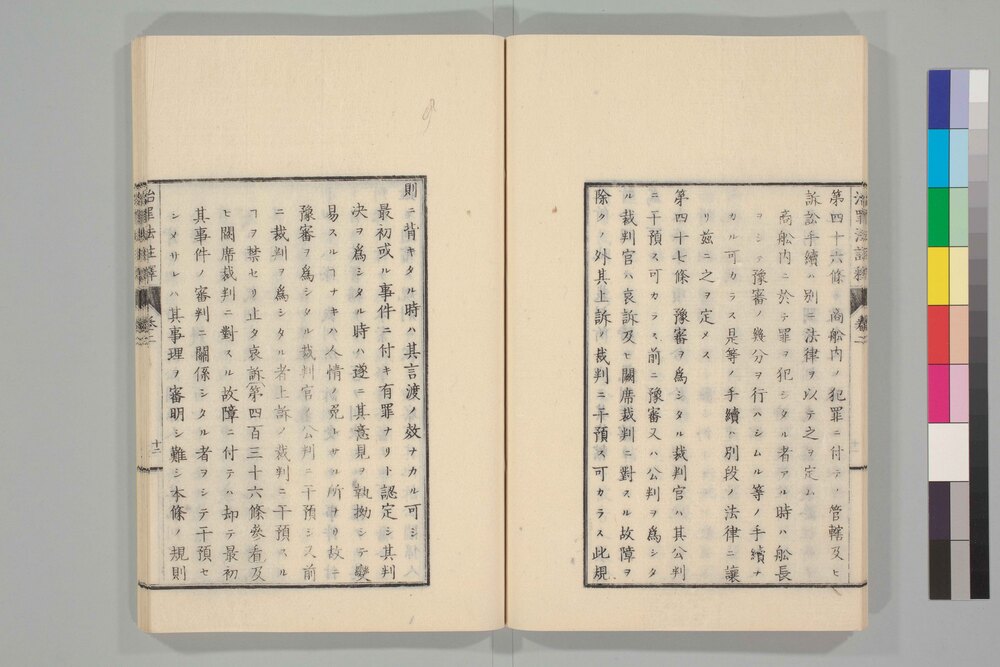 第四十六條 商舩内ノ犯罪ニ付テノ管轄及ヒ
訴訟手續ハ別ニ法律ヲ以テ之ヲ定ム
商舩内ニ於テ罪ヲ犯シタル者アル時ハ舩長
ヲシテ豫審ノ幾分ヲ行ハシムル等ノ手續ナ
カル可カラス是等ノ手續ハ別段ノ法律ニ讓
リ茲ニ之ヲ定メス
第四十七條 豫審ヲ爲シタル裁判官ハ其公判
ニ干預ス可カラス前ニ豫審又ハ公判ヲ爲シタ
ル裁判官ハ哀訴及ヒ闕席裁判ニ對スル故障ヲ
除クノ外其上訴ノ裁判ニ干預ス可カラス此規
則ニ背キタル時ハ其言渡ノ效ナカル可シ
最初或ル事件ニ付キ有罪ナリト認定シ其判
决ヲ爲シタル時ハ遂ニ其意見ヲ執拗シテ變
易スルヿナキハ人情ノ免レサル所ナリ故ニ
豫審ヲ爲シタル裁判官ハ公判ニ干預シ又前
ニ裁判ヲ爲シタル者上訴ノ裁判ニ干預スル
ヿヲ禁セリ止タ哀訴第四百三十六條參看及
ヒ闕席裁判ニ對スル故障ニ付テハ却テ最初
其事件ノ審判ニ關係シタル者ヲシテ干預セ
シメサレハ其事理ヲ審明シ難シ本條ノ規則
治罪法註釋 卷二 十二